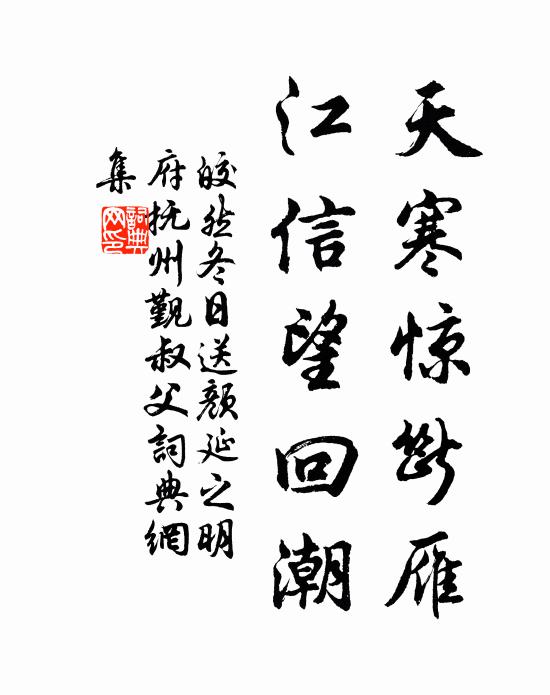 天寒惊断雁
江信望回潮
皎然冬日送颜延之明
府抚州觐叔父詞典網
集
詞典
网印